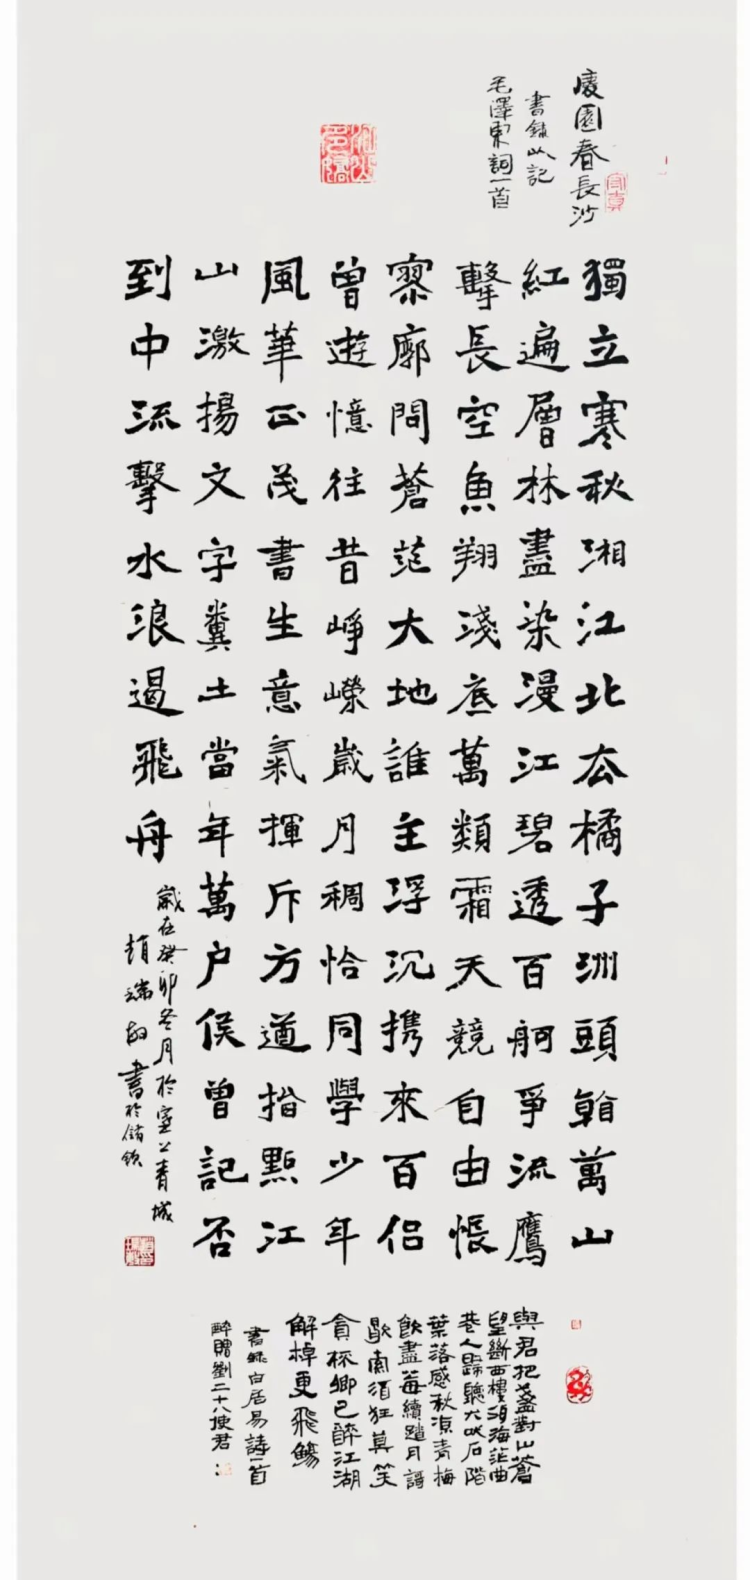 園春長沙
書錄以記
毛澤東詞一首
獨立寒秋湘江北去橘子洲頭看萬山
紅遍層林盡染漫江碧透百舸爭流鷹
擊長空魚翔淺底萬類霜天競自由悵
寥廓問蒼茫大地誰主浮沉携來百侶
曾遊憶往昔崢嶸歲月稠恰同學少年
風華正茂書生意氣揮斥方遒指點江
山激揚文字糞土當年萬户侯曾記否
到中流擊水浪遏飛舟
歲在癸卯冬月於塞上青城
趙瑞書於
與君把盞對山蒼
望斷西樓海茫曲
巷人歸聽犬吠石階
葉落感秋涼青梅
飲盡續月
歇須狂莫笑
貪杯卿已醉江湖
解棹更飛觴
書錄白居易詩一首
醉贈劉二十八使君